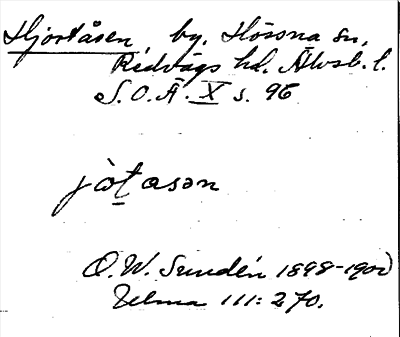 Hjortåsen, by. Hössna sn,
Redvägs hd. Älvsb. l.
S.O.Ä. X s. 96
jòtasən
O. W. Sundén 1898-1900
Zelma 111: 270.